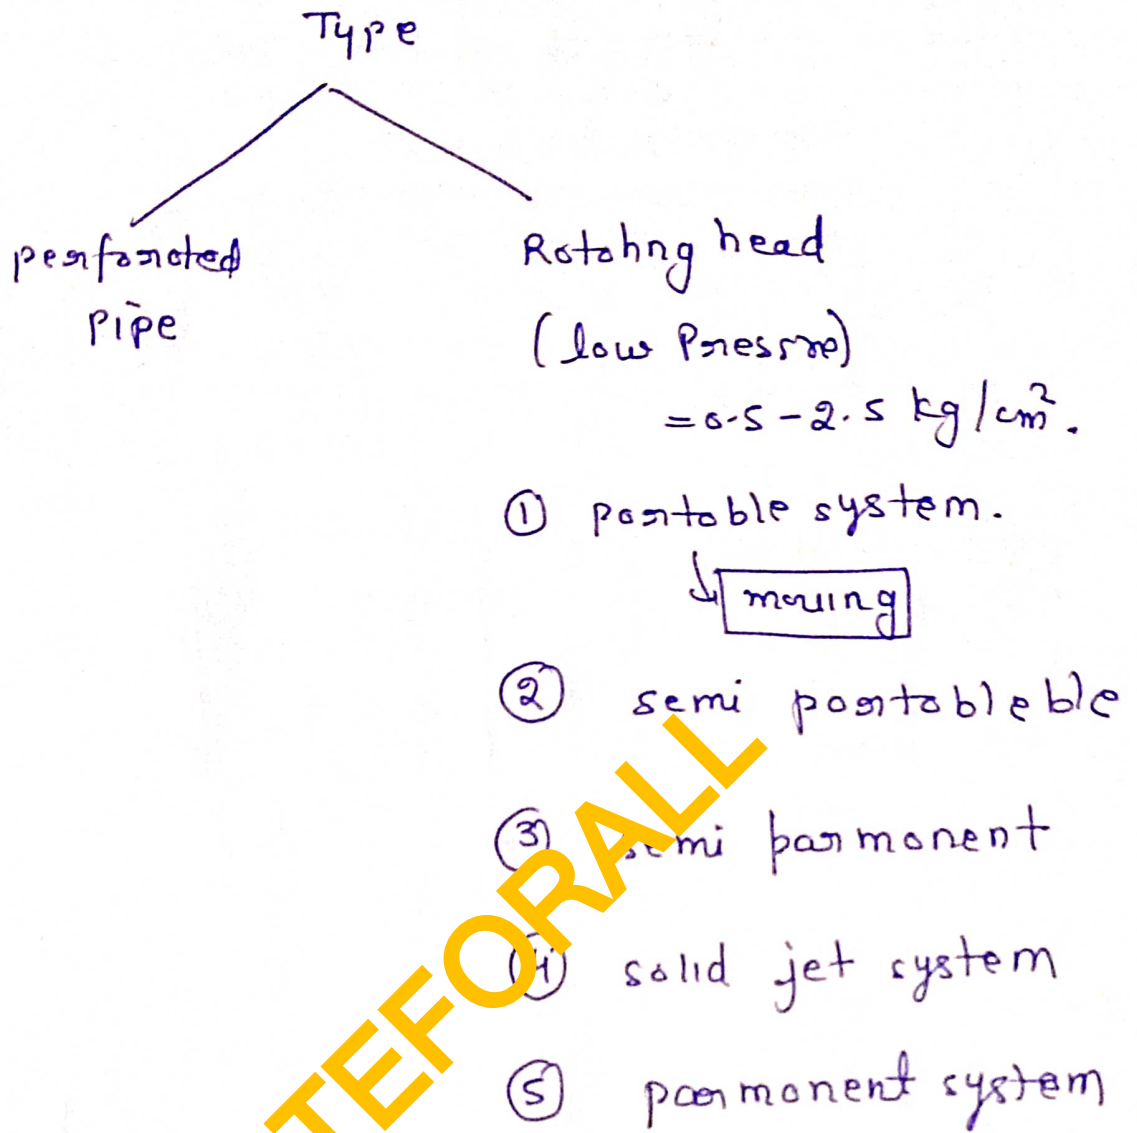 Type
perforated
Pipe
Rotating head
(low Pressre)
= 0.5 - 2.5 kg/cm².
① portable system.
moving
② semi portableble
③ semi parmanent
④ solid jet system
⑤ parmanent system
TEFORALL